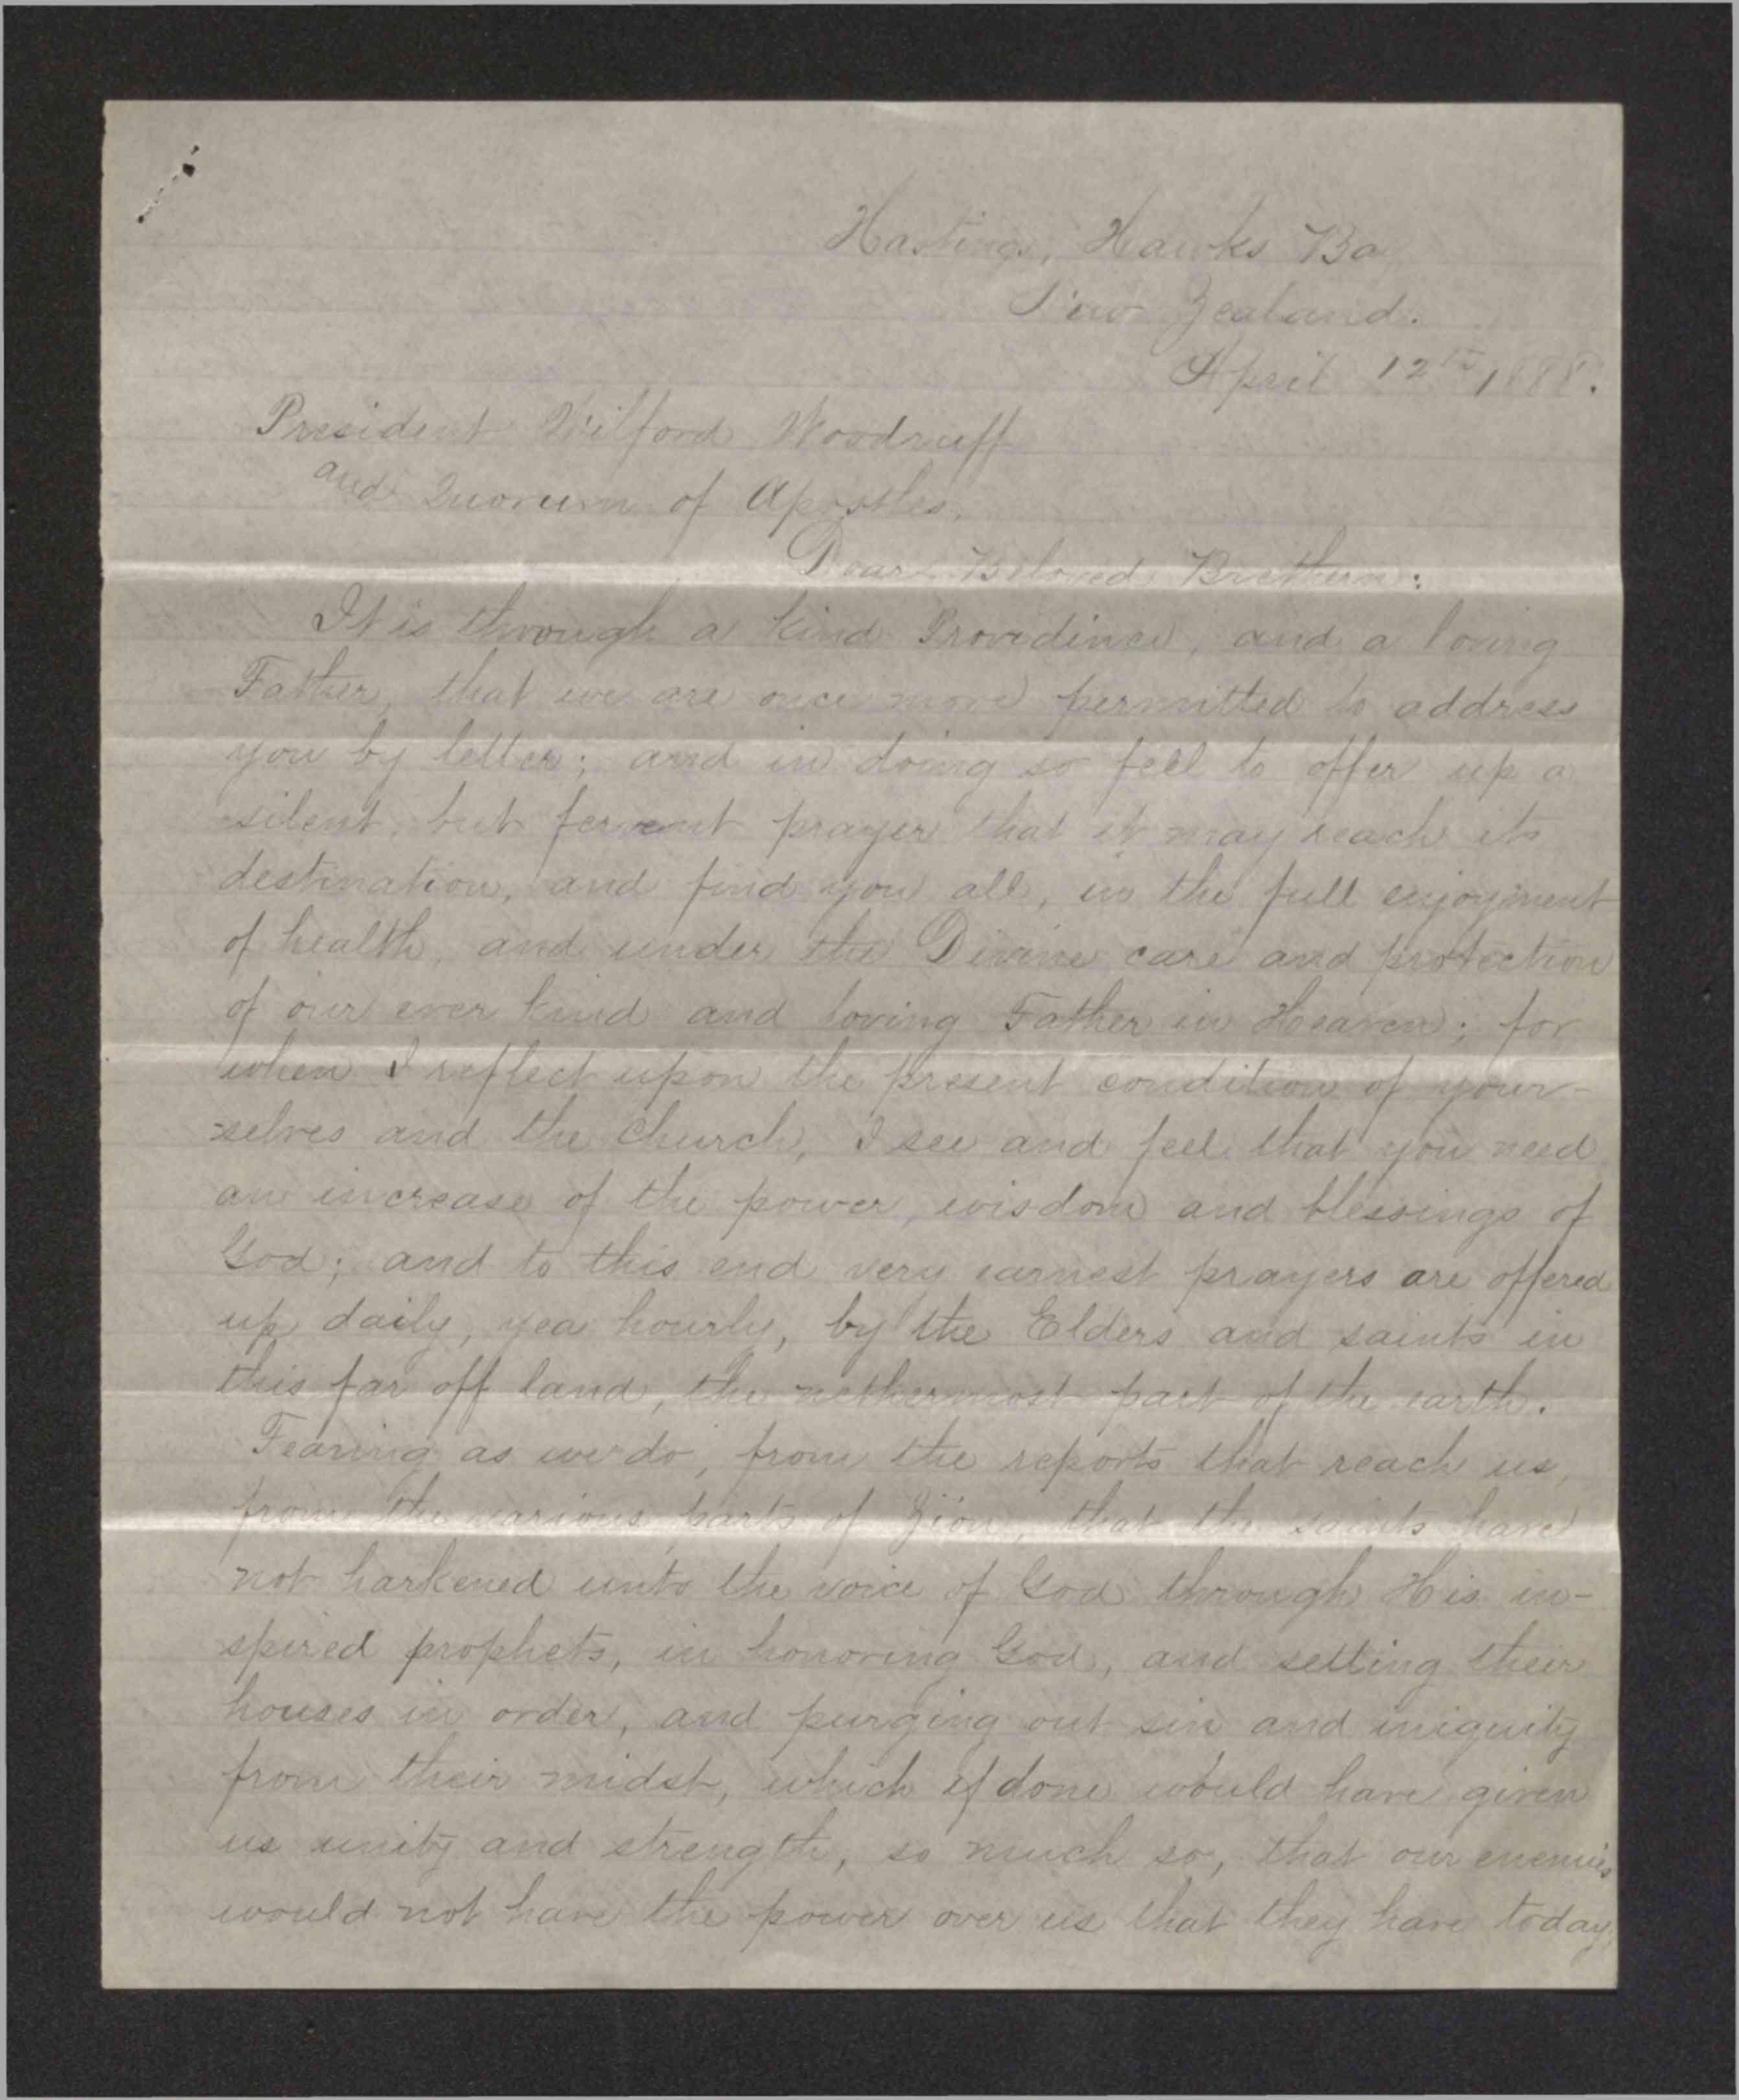 Hastings, Hawks Ba
New Zealand.
April 12th 1888.
President Wilford Woodruff
and Quorum of Apostles,
Dear Beloved Brethern:
It is through a kind Providince, and a loving
Father, that we are once more permitted to address
you by letter; and in doing so feel to offer up a
silent, but fervent prayer that it may reach its
destination, and find you all, in the full enjoyment
of health, and under the Divine care and protection
of our ever kind and loving Father in Heaven; for
when I reflect upon the present condition of your-
-selves and the church, I see and feel that you need
an increase of the power, wisdom and blessings of
God; and to this end very earnest prayers are offered
up daily, yea hourly, by the Elders and saints in
this far off land, the nethermost part of the earth.
Fearing as we do, from the reports that reach us,
from the various parts of Zion, that the saints have
not harkened unto the voice of God through His in-
spired prophets, in honoring God, and setting their
houses in order, and purging out sin and iniquity
from their midst, which if done would have given
us unity and strength, so much so, that our enemies
would not have the power over us that they have today,